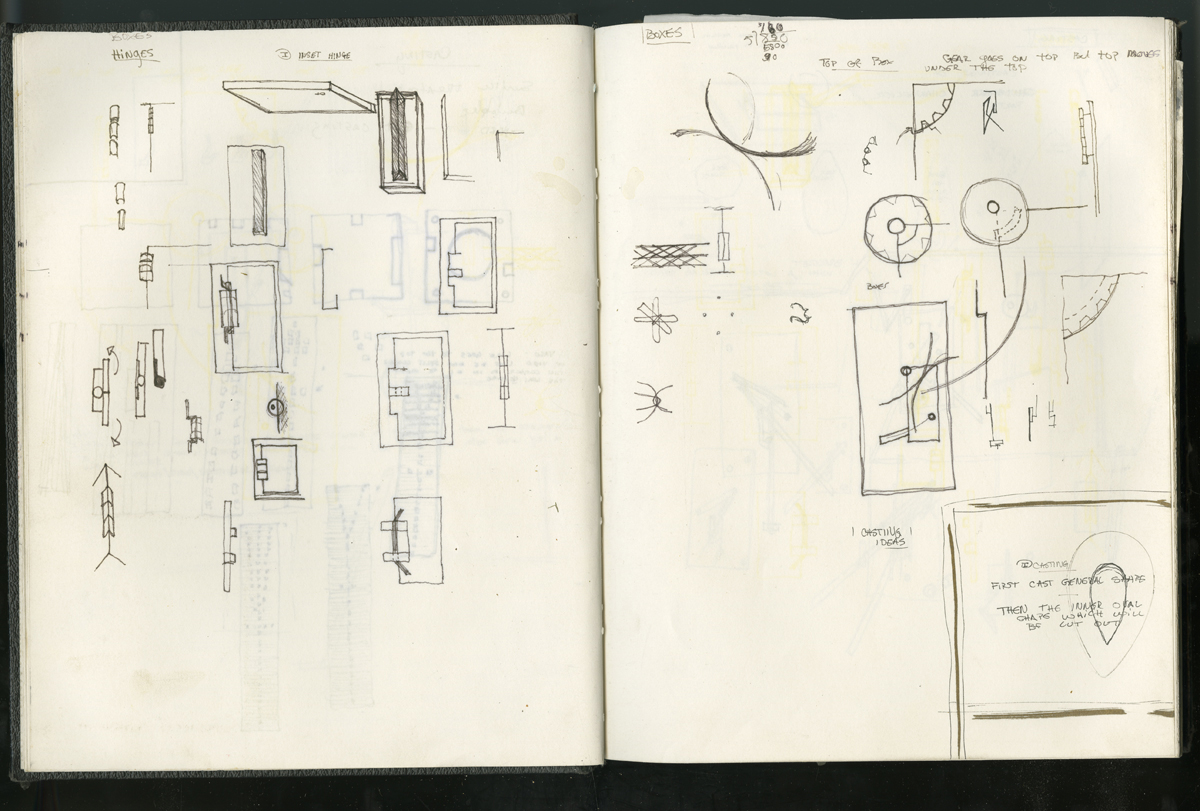 HINGES
① INSET HINGE
BOXES
TOP OF BOX
GEAR GOES ON TOP BUT TOP MOVES
UNDER THE TOP
BOXES
CASTING
IDEAS
CASTING
FIRST CAST GENERAL SHAPE
THEN THE INNER OVAL
SHAPE WHICH WILL
BE CUT OUT